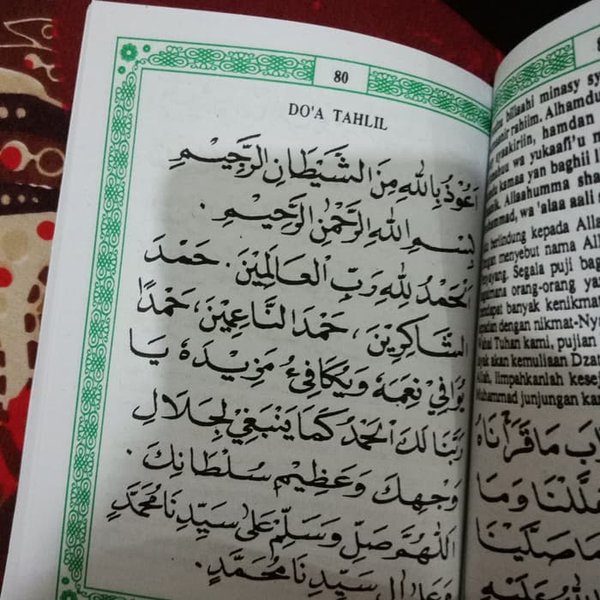 80
DO'A TAHLIL
اَعُوْذُ بِاللهِ مِنَ الشَّيْطَانِ الرَّجِيْمِ
بِسْمِ اللهِ الرَّحْمٰنِ الرَّحِيْمِ .
اَلْحَمْدُ لِلّٰهِ رَبِّ الْعَالَمِيْنَ . حَمْدَ
الشَّاكِرِيْنَ ، حَمْدَ النَّاعِمِيْنَ ، حَمْدًا
يُوَافِيْ نِعَمَهُ وَيُكَافِئُ مَزِيْدَهُ يَا
رَبَّنَا لَكَ الْحَمْدُ كَمَا يَنْبَغِيْ لِجَلَالِ
وَجْهِكَ وَعَظِيْمِ سُلْطَانِكَ .
اَللّٰهُمَّ صَلِّ وَسَلِّمْ عَلَى سَيِّدِنَا مُحَمَّدٍ
وَعَلَى اٰلِ سَيِّدِنَا مُحَمَّدٍ .
billaahi minasy
rahiim. Alhamdu
syaakiriin, hamdan
wa yukaafi'u
kamaa yan baghii
Allaahumma
wa 'alaa aali
berlindung kepada
menyebut nama
Segala puji
orang-orang
banyak kenikmat
dengan nikmat-Nya
Tuhan kami, pujian
akan kemuliaan
limpahkanlah
junjungan
مَا قَرَأْنَاهُ
وَمَا
مَا صَلَّيْنَا
عَلَيْهِ